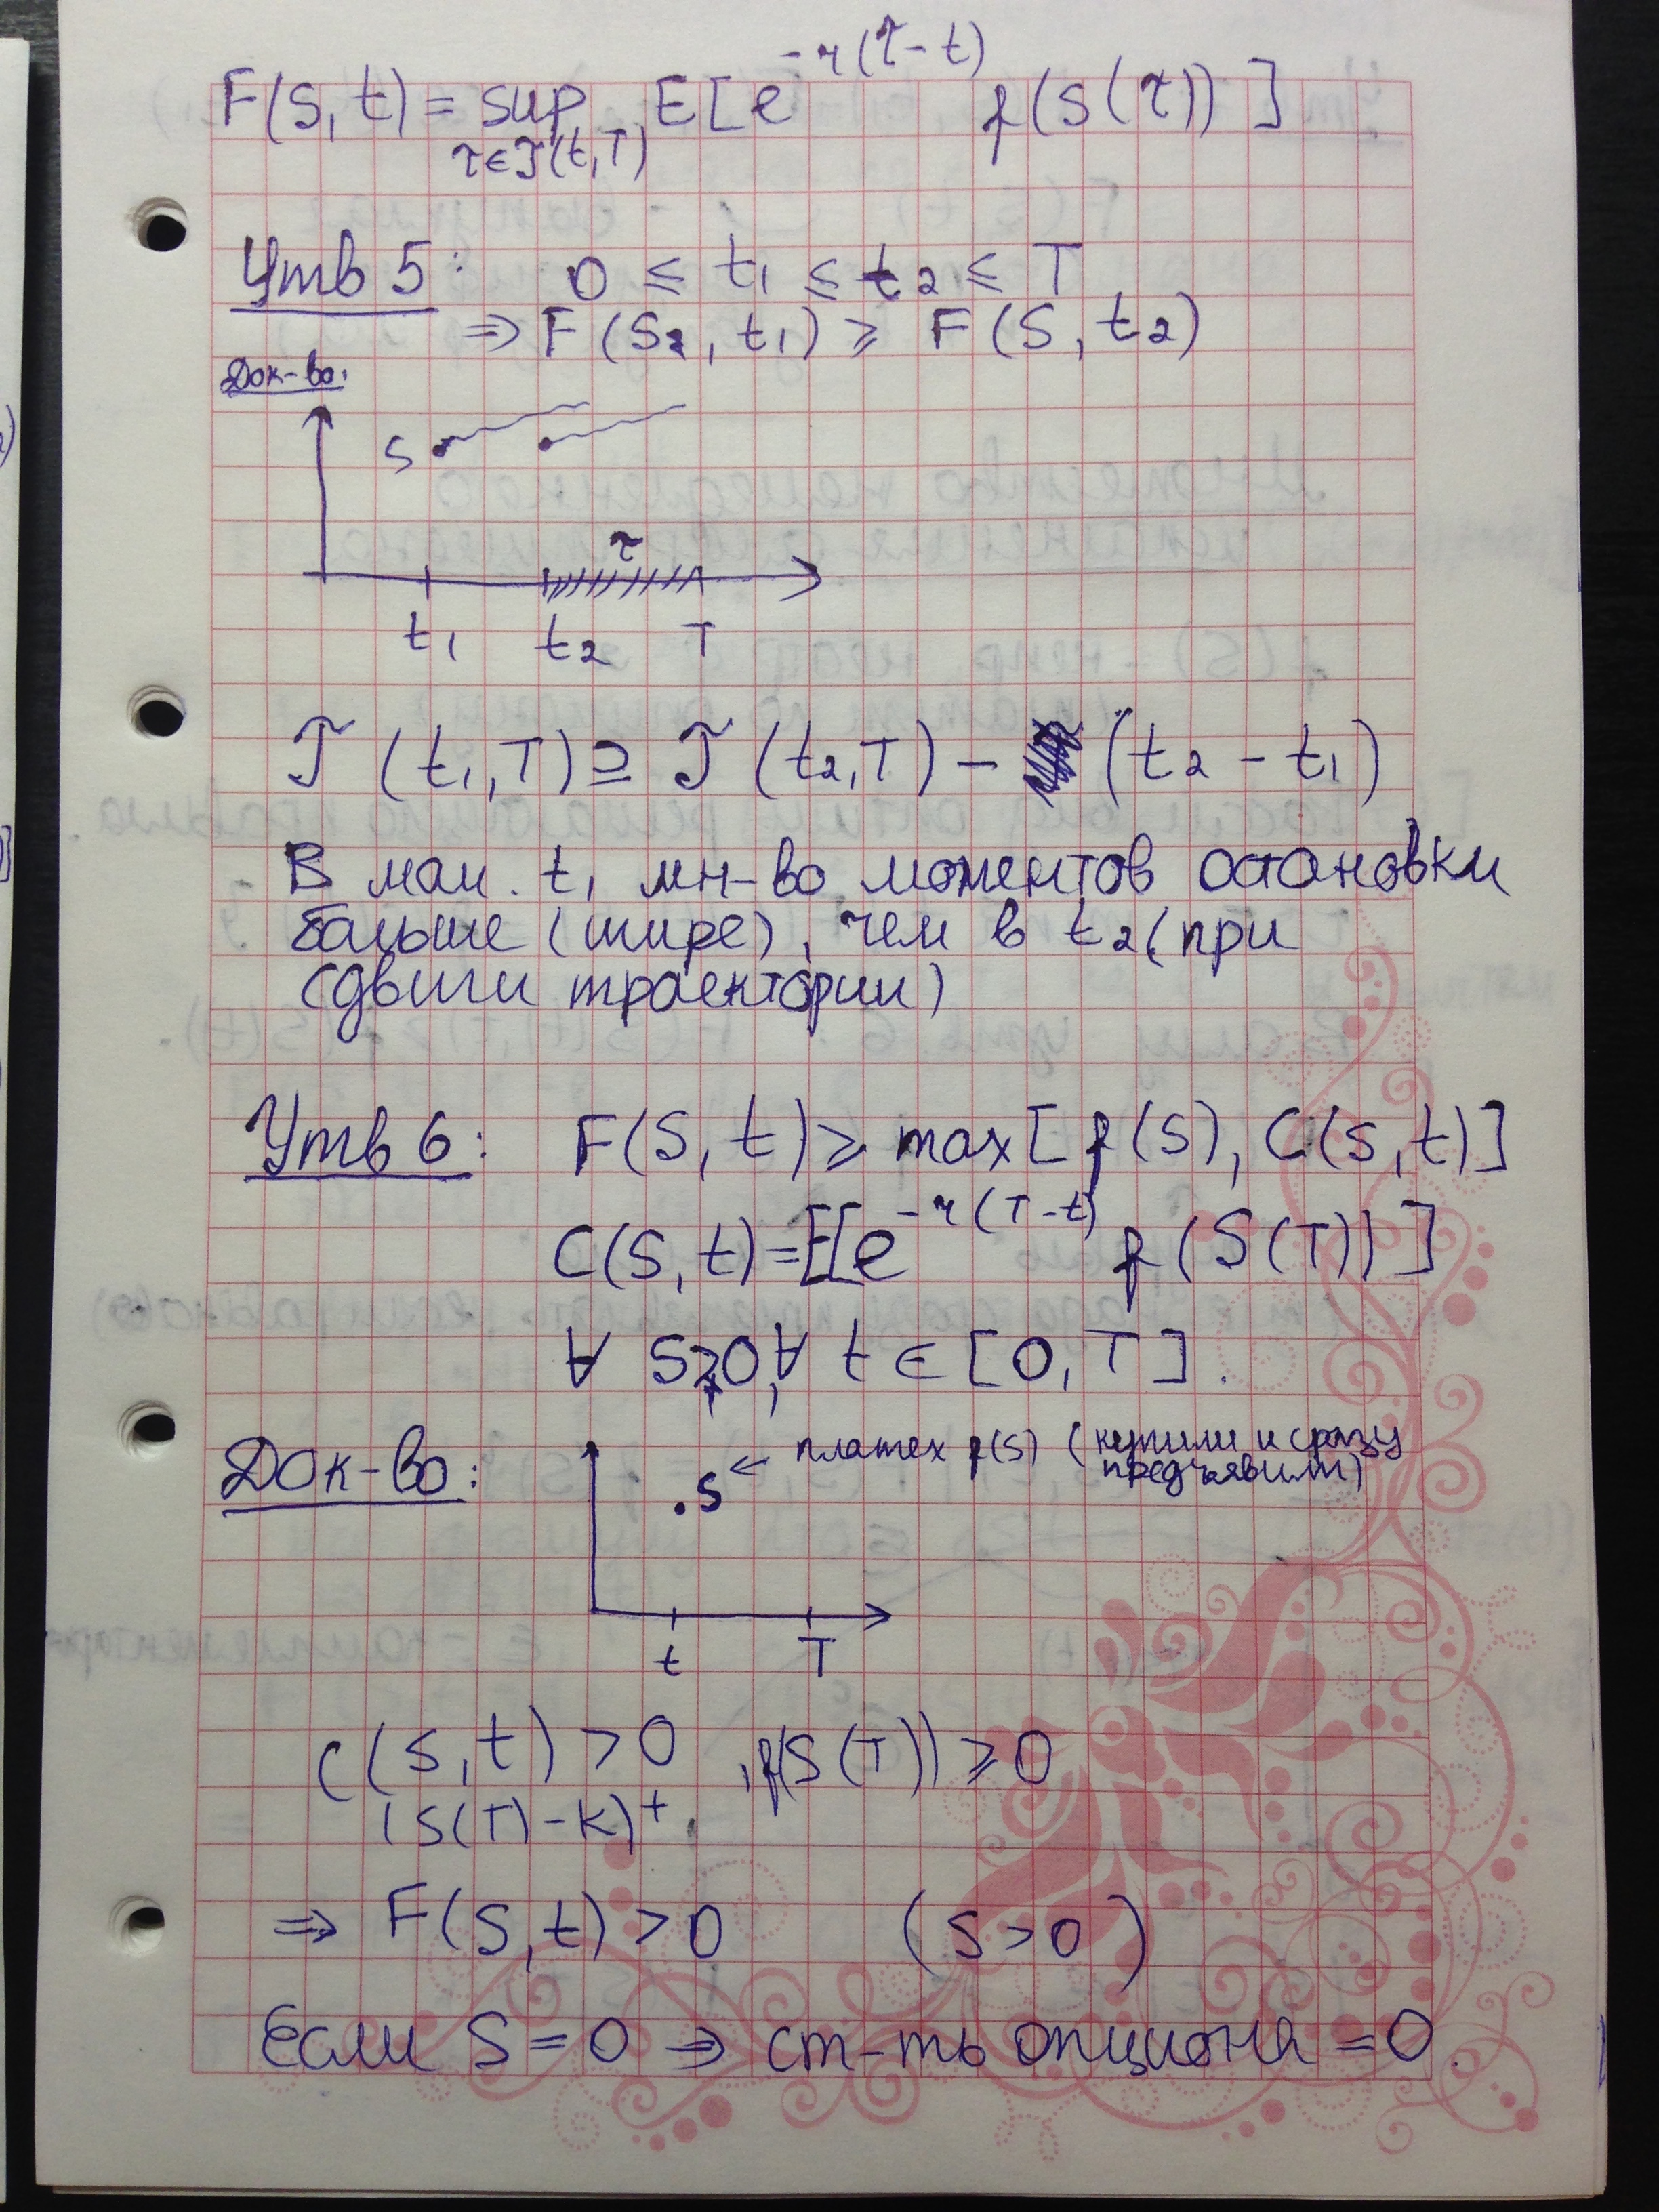 F(S, t) = sup E[e^{-r(τ-t)} f(S(τ))]
τ∈𝒯(t,T)
Утв 5: 0 ≤ t₁ ≤ t₂ ≤ T
⇒ F(S₂, t₁) ≥ F(S, t₂)
Док-во:
S
τ
t₁ t₂ T
𝒯(t₁,T) ⊇ 𝒯(t₂,T) - (t₂ - t₁)
В мом. t₁ мн-во моментов остановки
больше (шире), чем в t₂ (при
сдвиги траектории)
Утв 6: F(S, t) ≥ max[f(S), C(S, t)]
C(S, t) = E[e^{-r(T-t)} f(S(T))]
∀ S≥0, ∀ t ∈ [0, T].
Док-во: S ← платеж f(S) (купили и сразу
предъявили)
t T
C(S, t) > 0, f(S(T)) ≥ 0
(S(T)-K)⁺
⇒ F(S, t) > 0 (S > 0)
Если S = 0 ⇒ ст-ть опциона = 0.